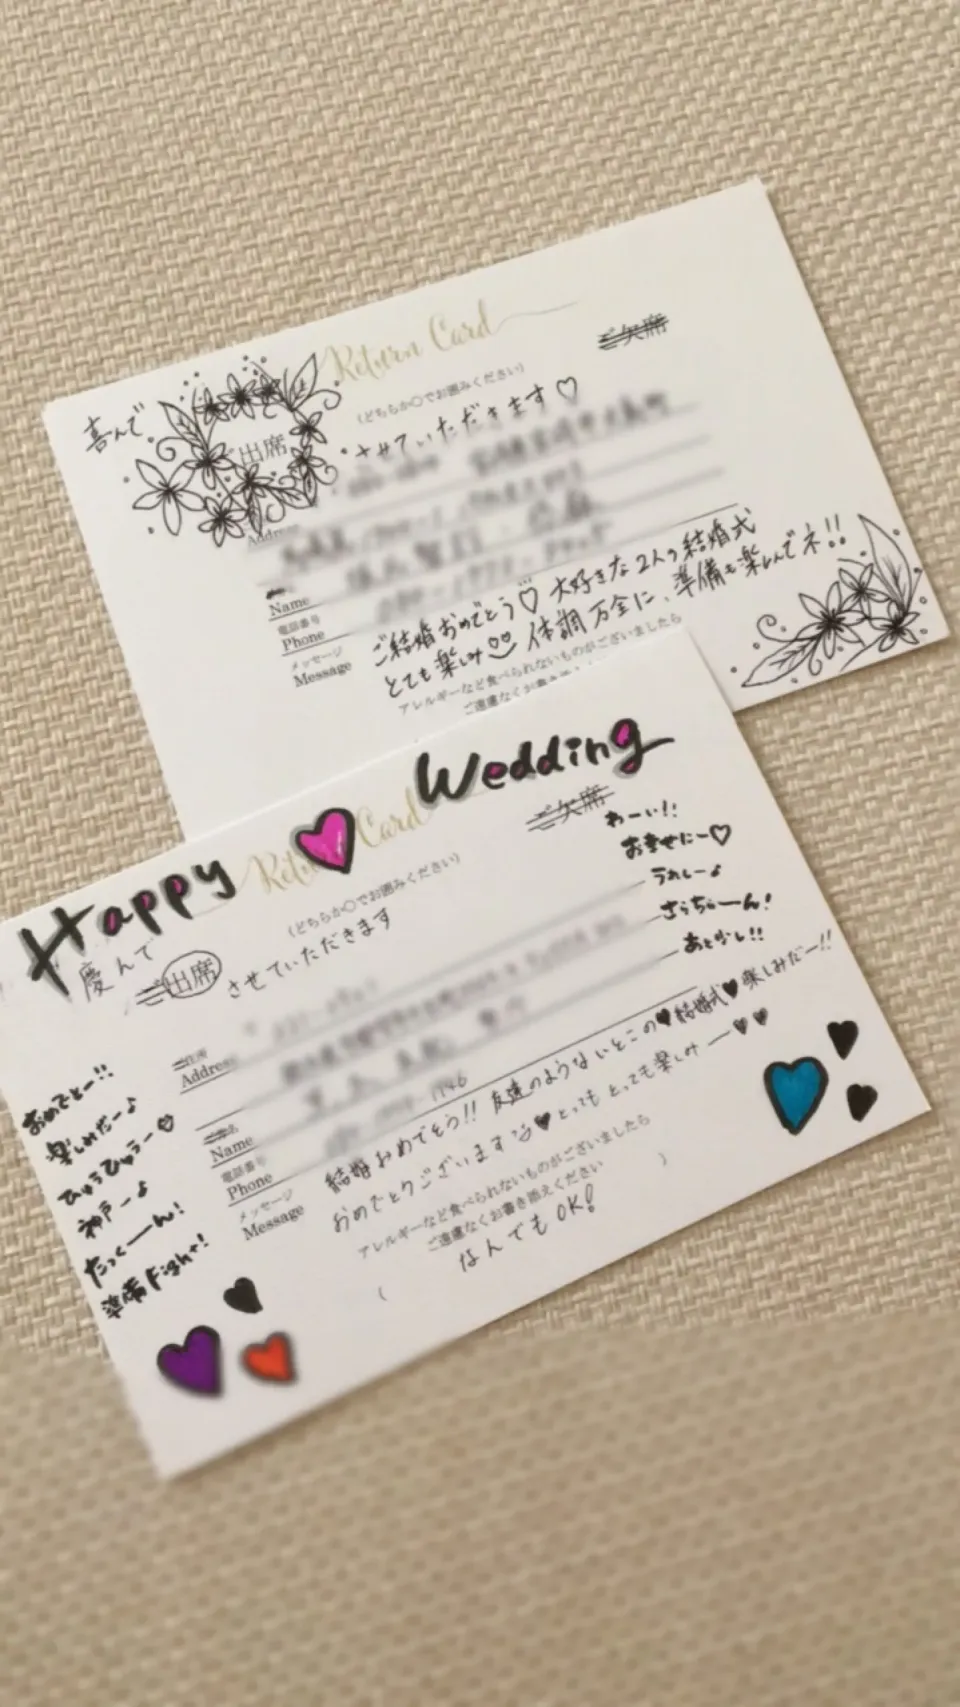 Return Card
ご欠席
(どちらか○でお囲みください)
喜んで
ご出席
させていただきます♡
Address
Name
電話番号
Phone
メッセージ
Message
ご結婚おめでとう♡ 大好きな2人の結婚式
とても楽しみ 体調万全に、準備も楽しんでネ!!
アレルギーなど食べられないものがございましたら
ご遠慮なくお書き
Happy ♥ Wedding
Return Card
ご欠席
(どちらか○でお囲みください)
慶んで
ご出席
させていただきます
わーい!!
お幸せにー♡
うれしー♪
さっちゃーん!
あと少し!!
ご住所
Address
Name
電話番号
Phone
1746
メッセージ
Message
結婚おめでとう!! 友達のようないとこの♥結婚式♥楽しみだー!!
おめでとうございます♥とっても とっても楽しみ―♥♥
アレルギーなど食べられないものがございましたら
ご遠慮なくお書き添えください
( なんでもOK! )
おめでとー!!
楽しみだー♪
ひゅうひゅうー♡
神戸ー♪
たっくーん!
準備Fight!